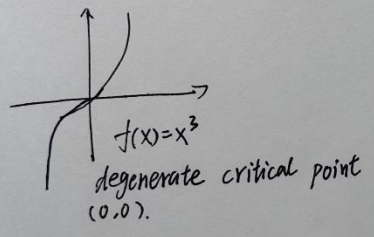 f(x)=x³
degenerate critical point
(0,0).